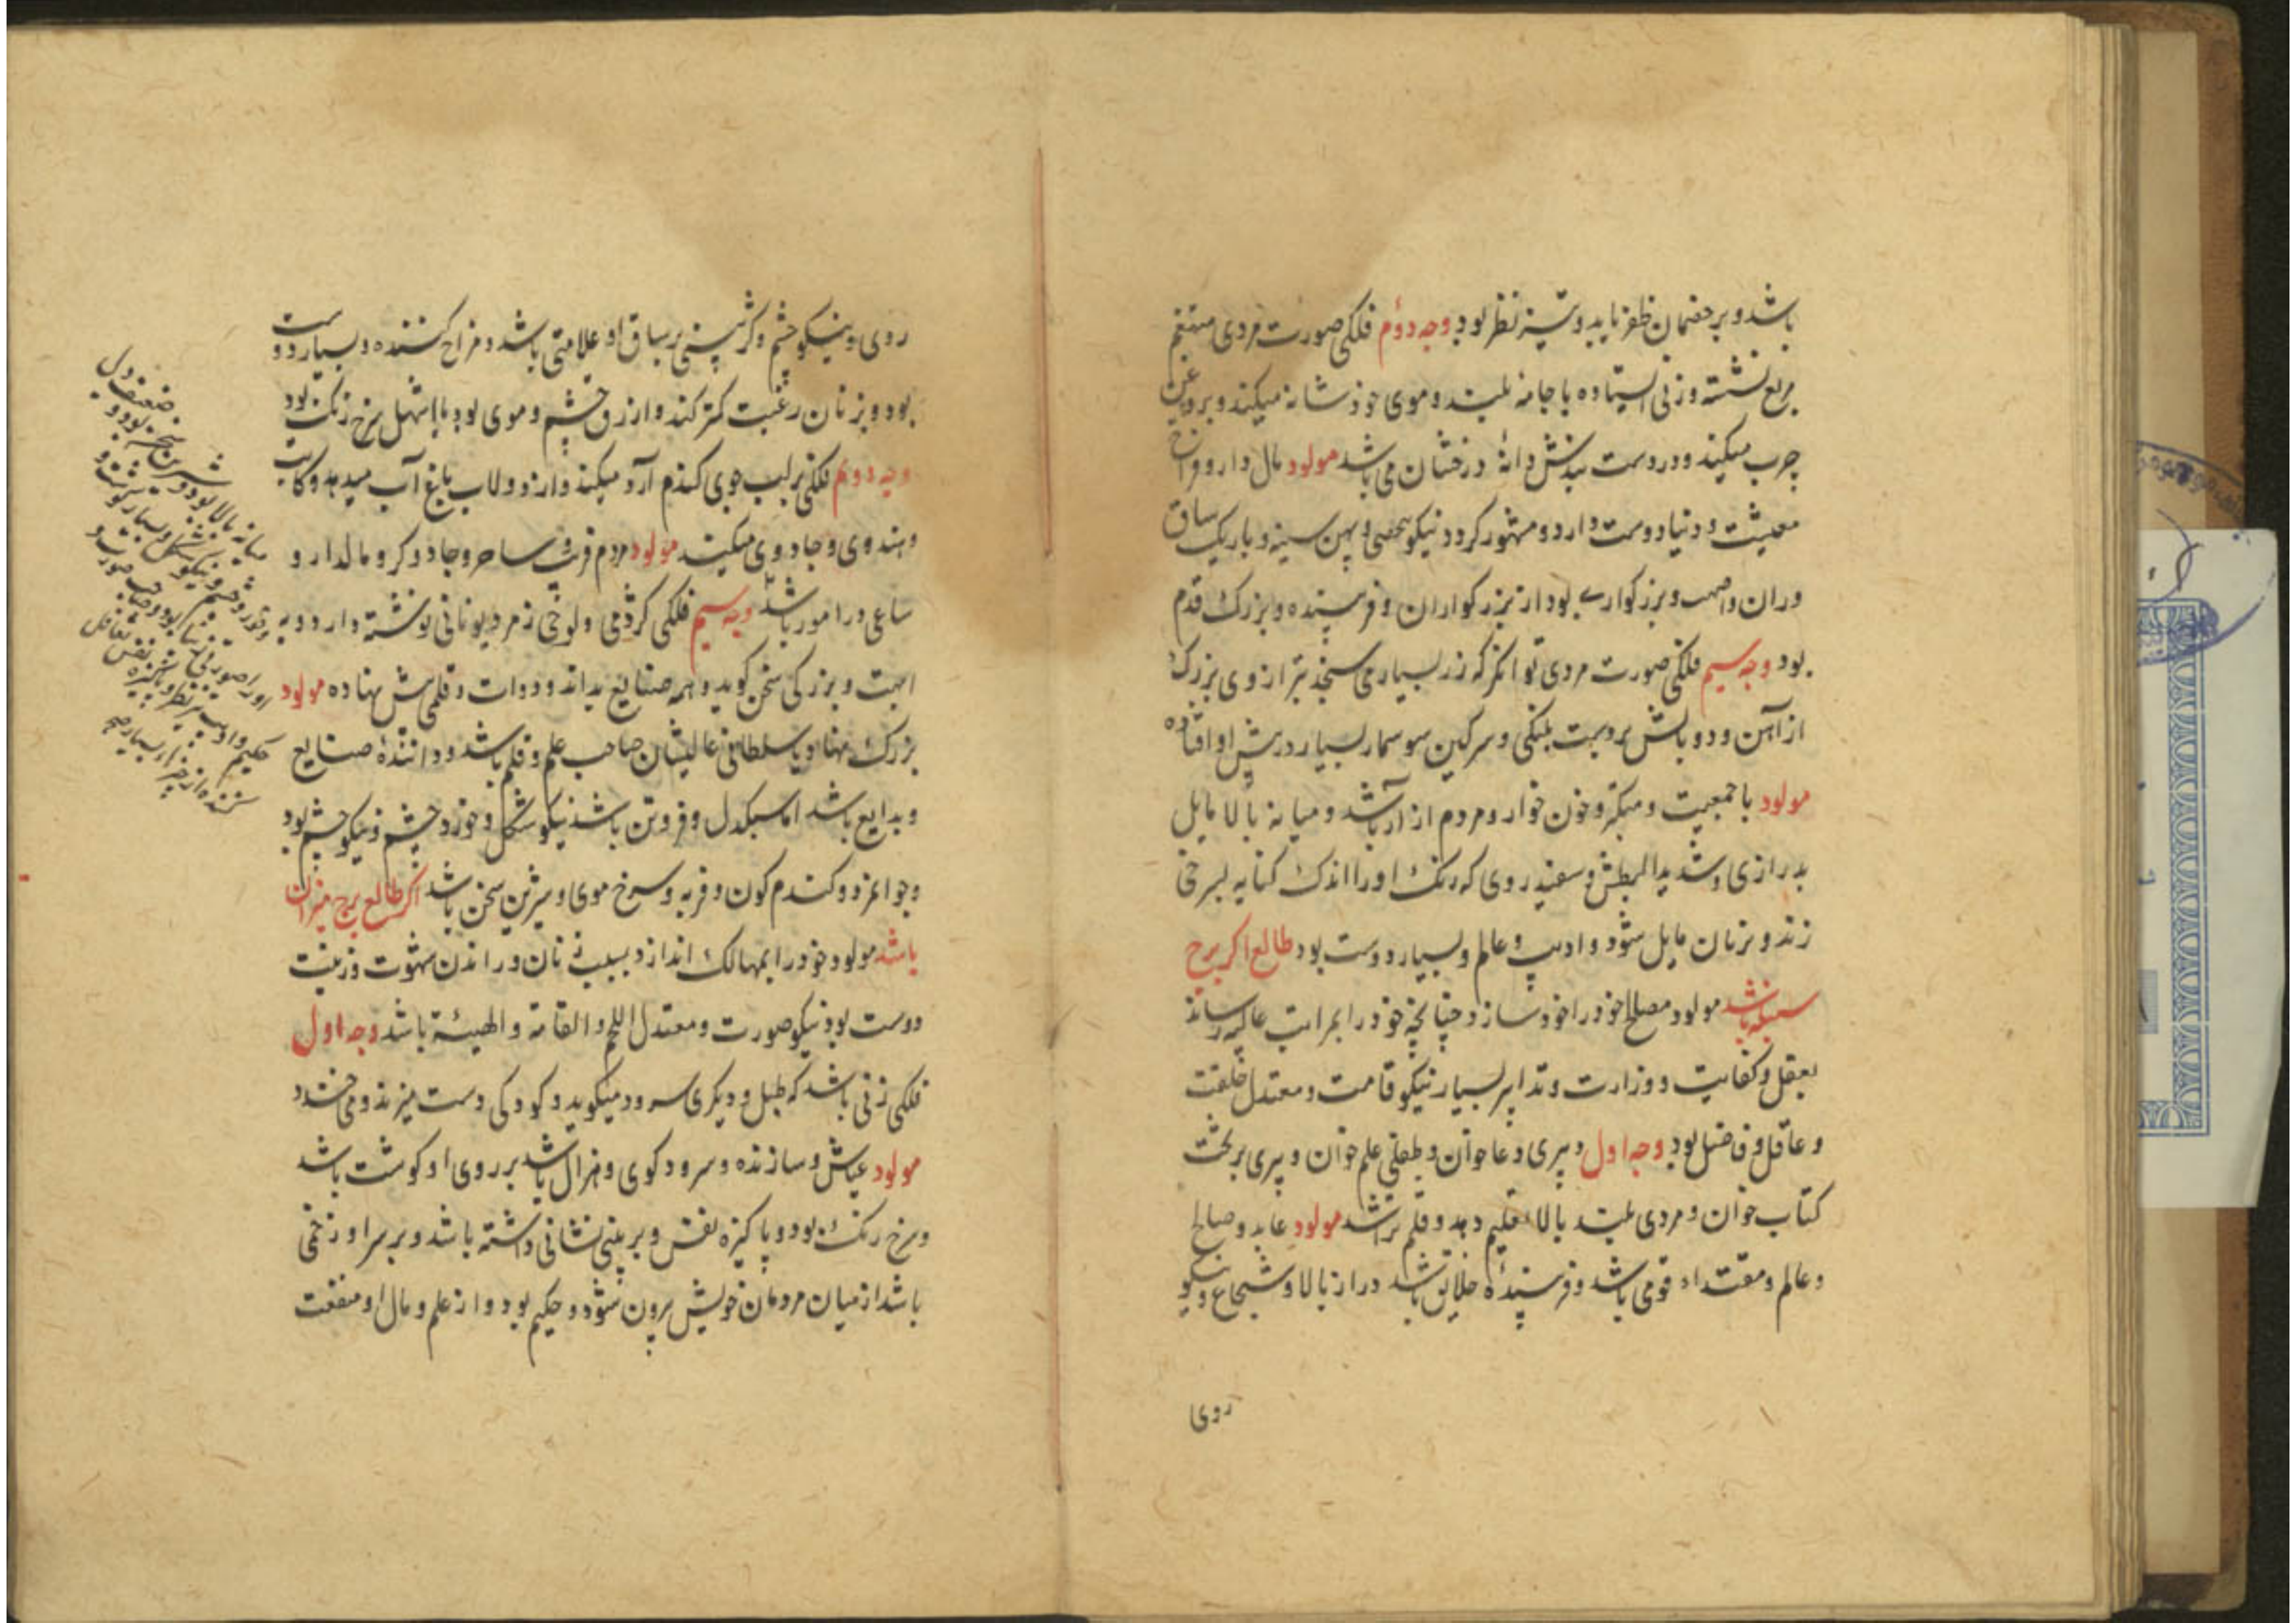 باشد و بر خصمان ظفر یابد و تیز نظر بود وجه دوم فلکی صورت مردی متنعم
مربع نشسته و زنی ایستاده با جامه بلند و موی خود شانه میکند و بروغن
چرب میکند و در دست دانه درخشان می باشد مولود مال دار و فراخ
معیشت و دنیا دوست دارد و مشهور کردد نیکو و پهن سینه و باریک ساق
وران و بزرکواری بود از بزرکواران و فریبنده و بزرک قدم
بود وجه سیم فلکی صورت مردی توانکر که زر بسیار می سنجد بترازوی بزرک
از آهن و دو دست پلنکی و سرکین سوسمار بسیار در پیش او افتاده
مولود با جمعیت و متکبر و خون خوار و مردم ازار باشد و میانه بالا مایل
بدرازی و شدید البطش و سفید روی که رنک او را اندک کنایه بسرخی
زند و بزنان مایل شود و ادیب و عالم و بسیار دوست بود طالع اکر برج
سنبله باشد مولود مصالح خود را خود سازد چنانچه خود را بمراتب عالیه رساند
بعقل و کفایت و وزارت و تدابیر بسیار نیکو قامت و معتدل خلقت
و عاقل و فاضل بود وجه اول پیری دعا خوان و طفلی علم خوان و پیری بر تخت
کتاب خوان و مردی بلند بالا دهد و قلم تراشد مولود عابد و صالح
و عالم و مقتداء قومی باشد و فریبندهٔ خلایق باشد دراز بالا و شجاع و نیکو
روی
روی و نیکو چشم و بر ساق او علامتی باشد و مزاح کننده و بسیار دوست
بود و بزنان رغبت کمتر کند و ازرق چشم و موی بود یا اشهل سرخ رنک بود
وجه دوم فلکی بر لب جوی کندم آرد میکند و از دولاب باغ آب میدهد و کتابت
و هندوی و جادوی میکند مولود مردم فریب و ساحر و جادوکر و مالدار و
ساعی در امور باشد وجه سیم فلکی کژدمی و لوحی ز مرد یونانی نوشته دارد و به
ابهت و بزرکی سخن کوید و همه صنایع بداند و دوات و قلمی پیش نهاده مولود
بزرک نهاد یا سلطانی عالیشان صاحب علم و قلم باشد و دانندهٔ صنایع
و بدایع باشد اما سبکدل و فروتن باشد نیکو شکل و خورد چشم و نیکو چشم بود
و جوانمرد و کندم کون و فربه و سرخ موی و شیرین سخن باشد اکر طالع برج میزان
باشد مولود خود را بمهالک اندازد بسبب زنان و راندن شهوت و زینت
دوست بود نیکو صورت و معتدل اللحم و القامة و الهیئة باشد وجه اول
فلکی زنی باشد که طبل و دیکری سرود میکوید و کودکی دست میزند و می خندد
مولود عیاش و سازنده و سرود کوی و هزال باشد بر روی او کوشت باشد
و سرخ رنک بود و پاکیزه نفس و بر بینی نشانی داشته باشد و بر سر او زخمی
باشد از میان مردمان خویش برون شود و حکیم بود و از علم و مال او منفعت
ضعیف دل
شیرین سخن بود و
میانه بالا بود و
نیکو شکل و بسیار
اورا صورتی
حکیم و ادیب تیز نظر و پاکیزه نفس